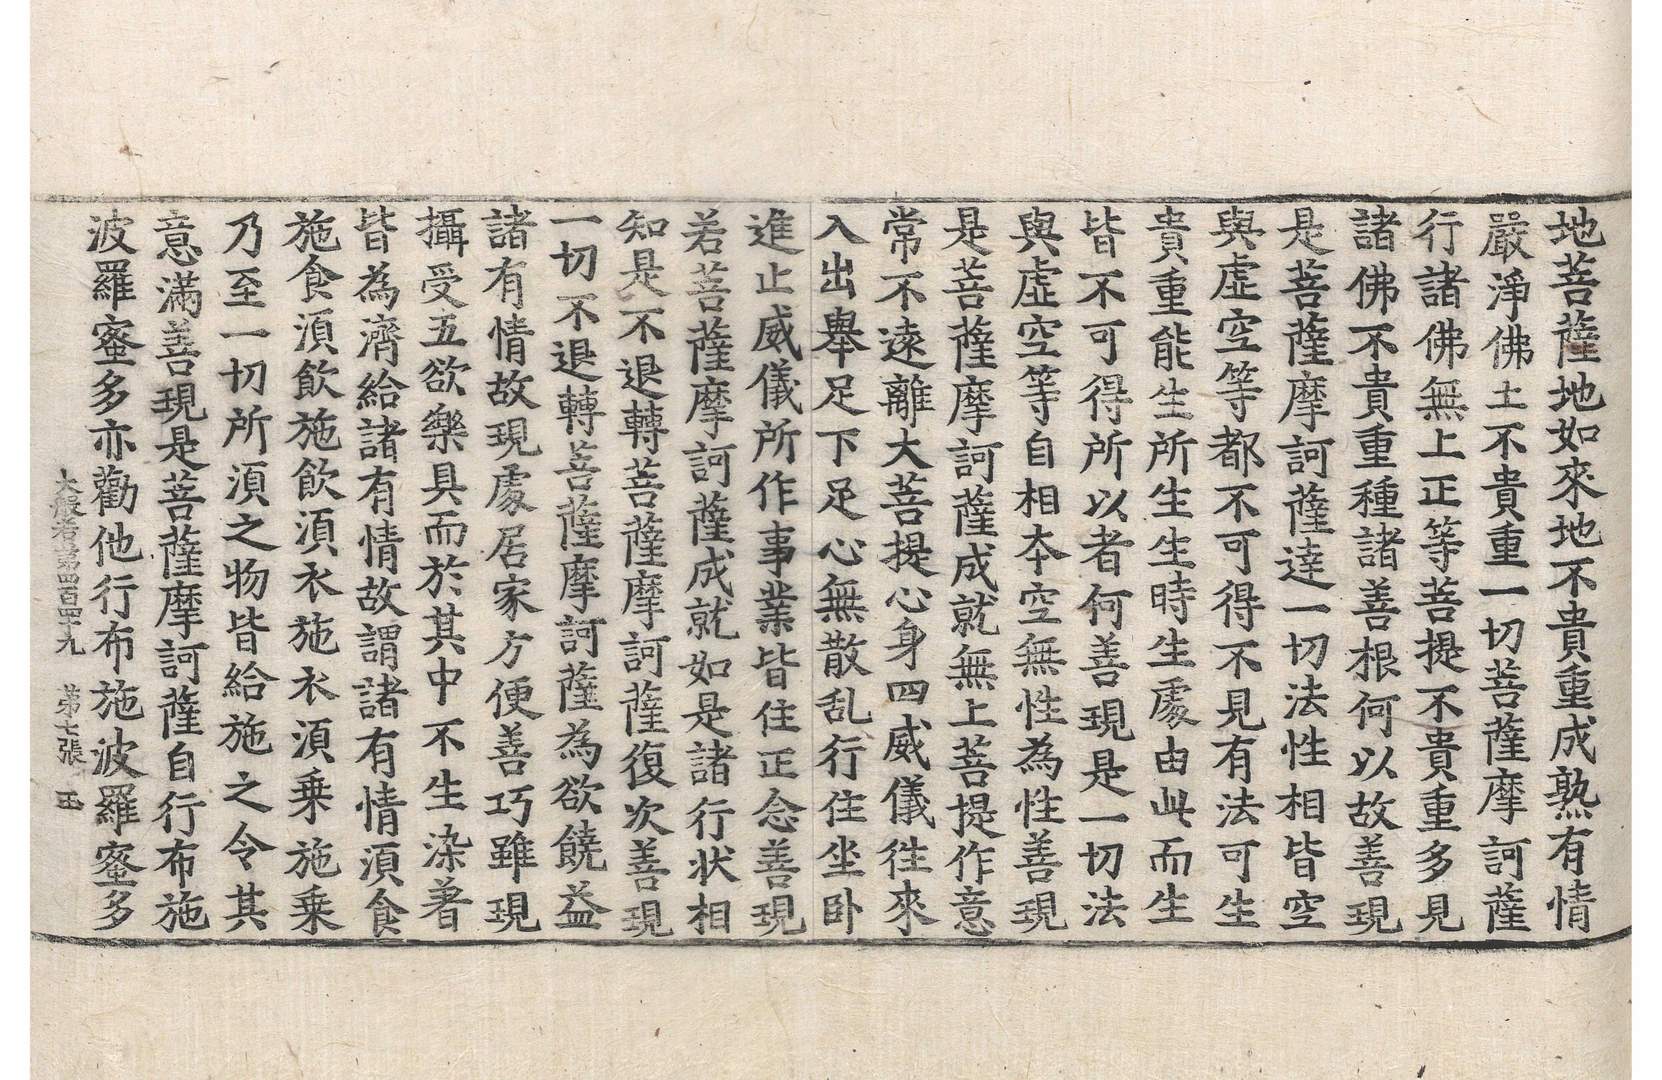 地菩薩地如來地不貴重成熟有情
嚴淨佛土不貴重一切菩薩摩訶薩
行諸佛無上正等菩提不貴重多見
諸佛不貴重種諸善根何以故善現
是菩薩摩訶薩達一切法性相皆空
與虛空等都不可得不見有法可生
貴重能生所生生時生處由此而生
皆不可得所以者何善現是一切法
與虛空等自相本空無性為性善現
是菩薩摩訶薩成就無上菩提作意
常不遠離大菩提心身四威儀往來
入出舉足下足心無散乱行住坐卧
進止威儀所作事業皆住正念善現
若菩薩摩訶薩成就如是諸行状相
知是不退轉菩薩摩訶薩復次善現
一切不退轉菩薩摩訶薩為欲饒益
諸有情故現處居家方便善巧雖現
攝受五欲樂具而於其中不生染著
皆為濟給諸有情故謂諸有情湏食
施食湏飲施飲湏衣施衣湏乗施乗
乃至一切所湏之物皆給施之令其
意滿善現是菩薩摩訶薩自行布施
波羅蜜多亦勸他行布施波羅蜜多
大般若第四百四十九 第七張 玉